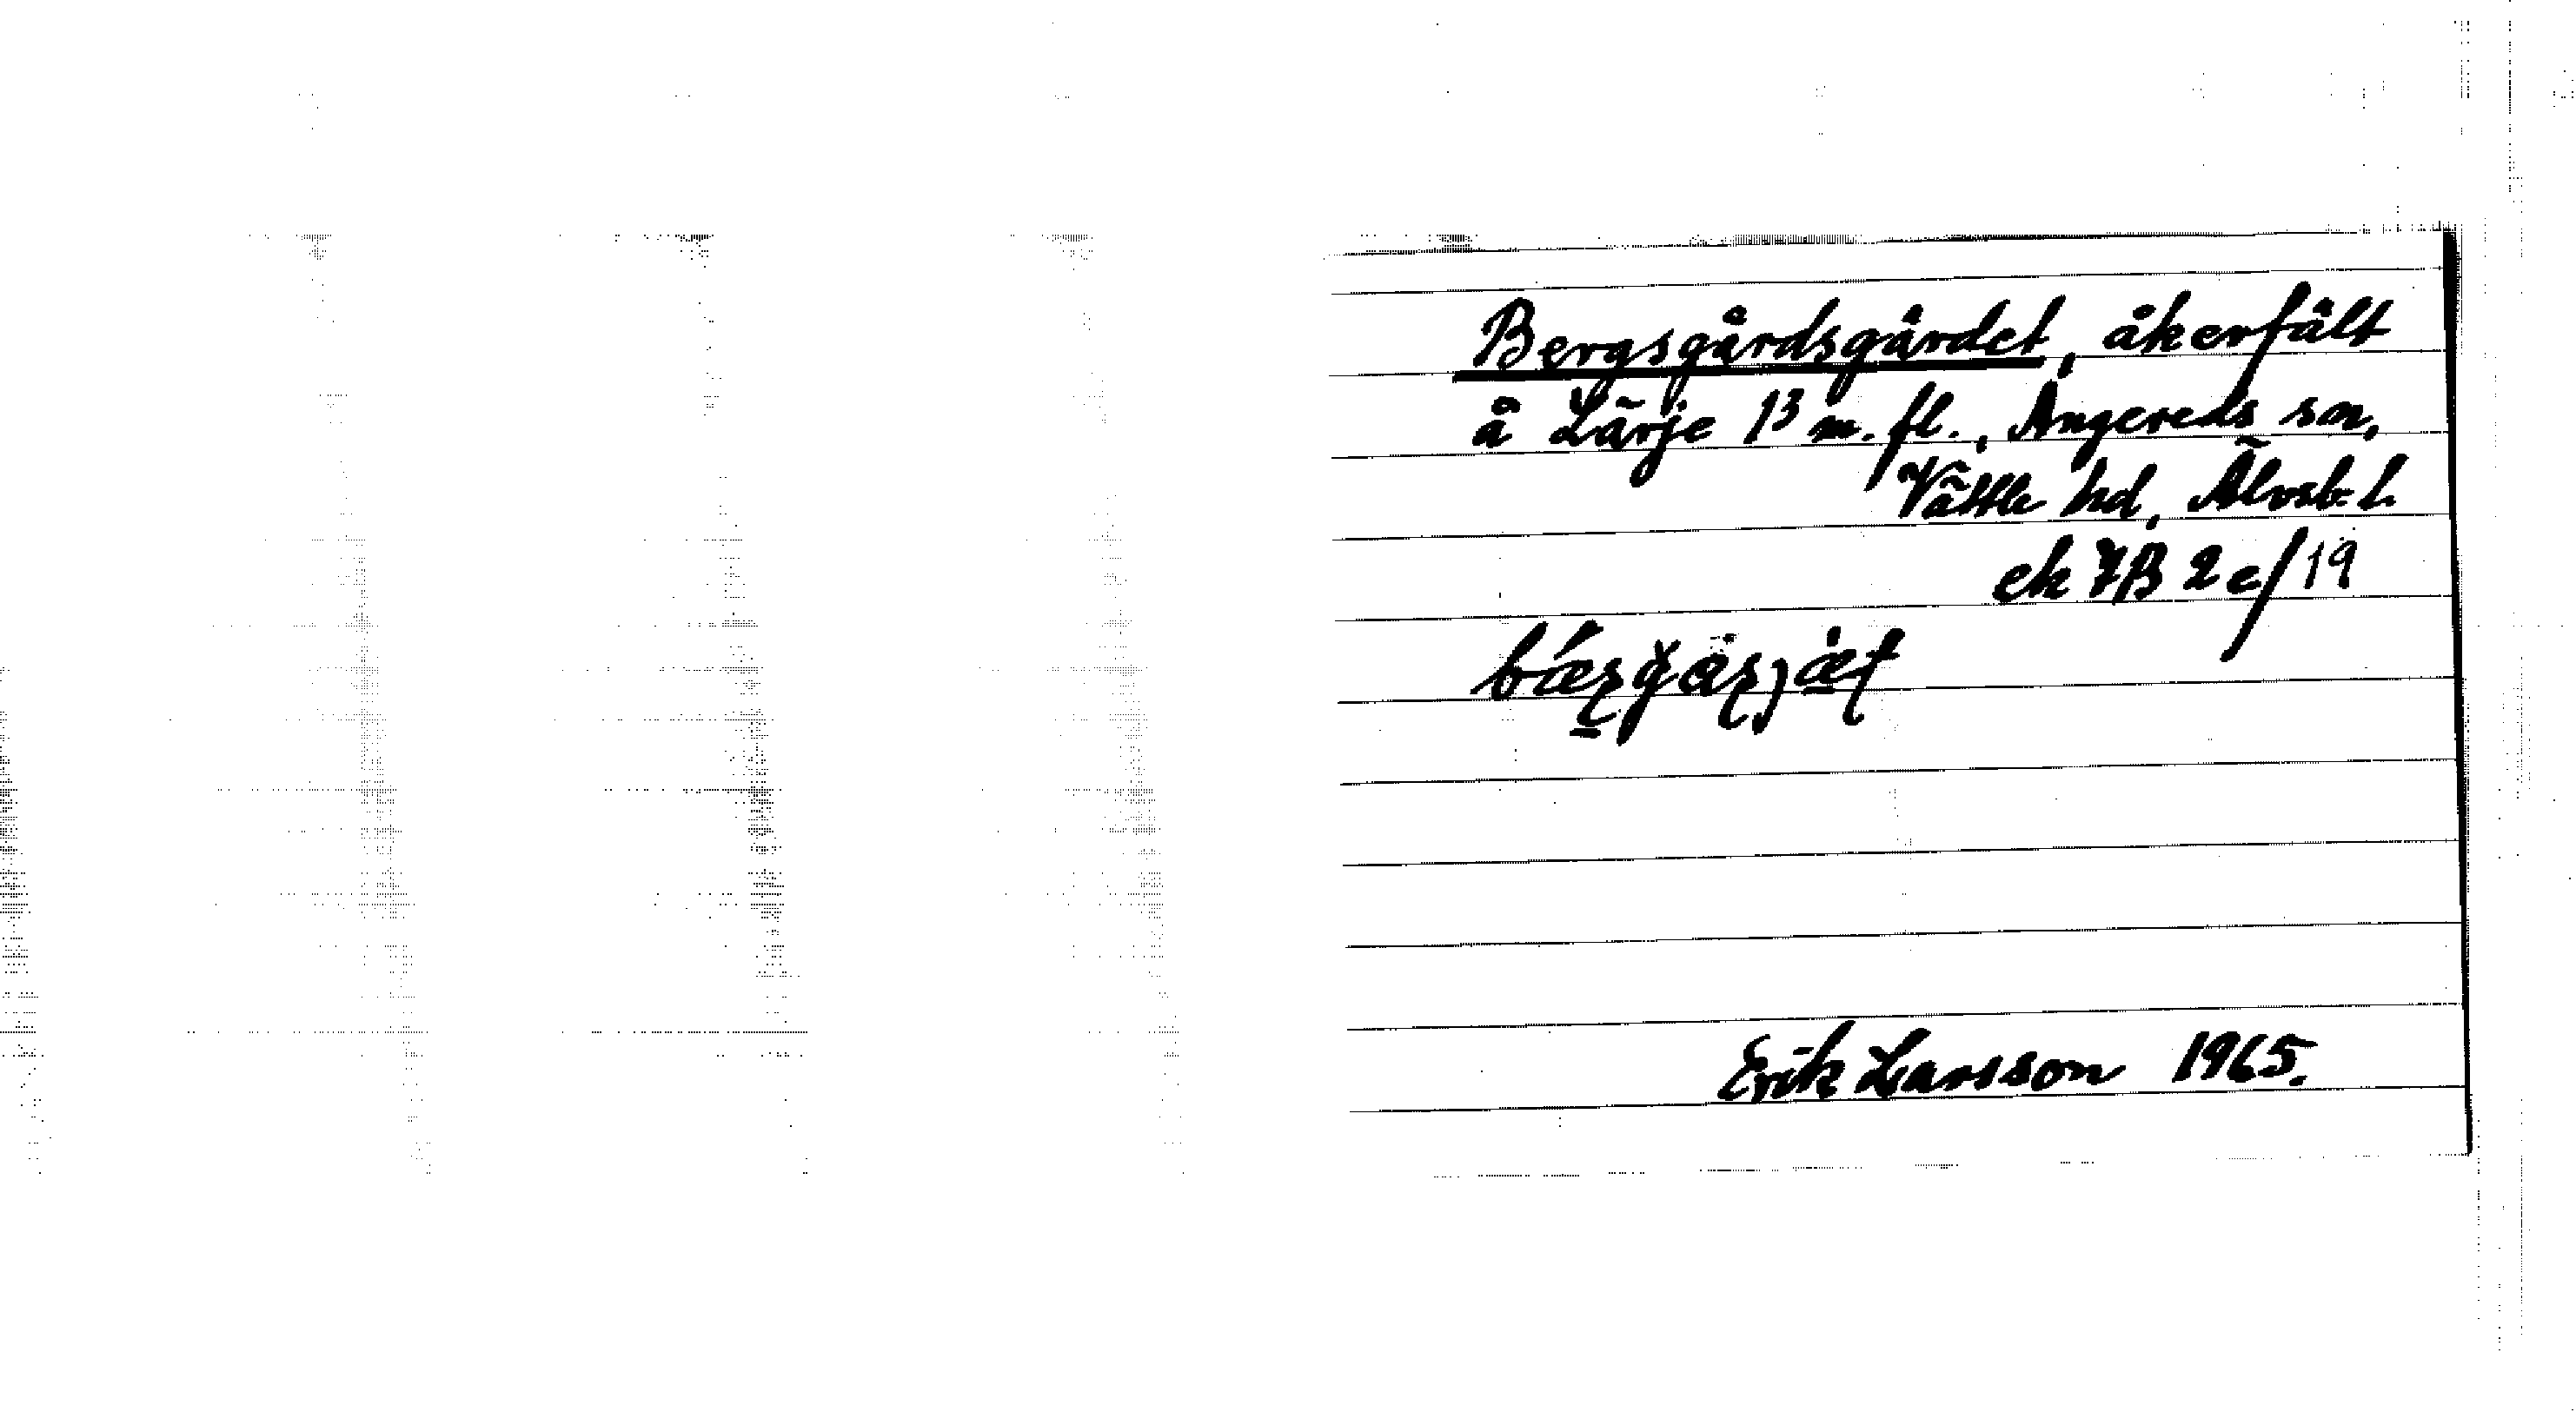 Bergsgårdsgärdet, åkerfält
å Lärje 1³ m. fl., Angereds sn,
Vättle hd, Älvsb. l.
ek 7B 2e/19
Erik Larsson 1965.